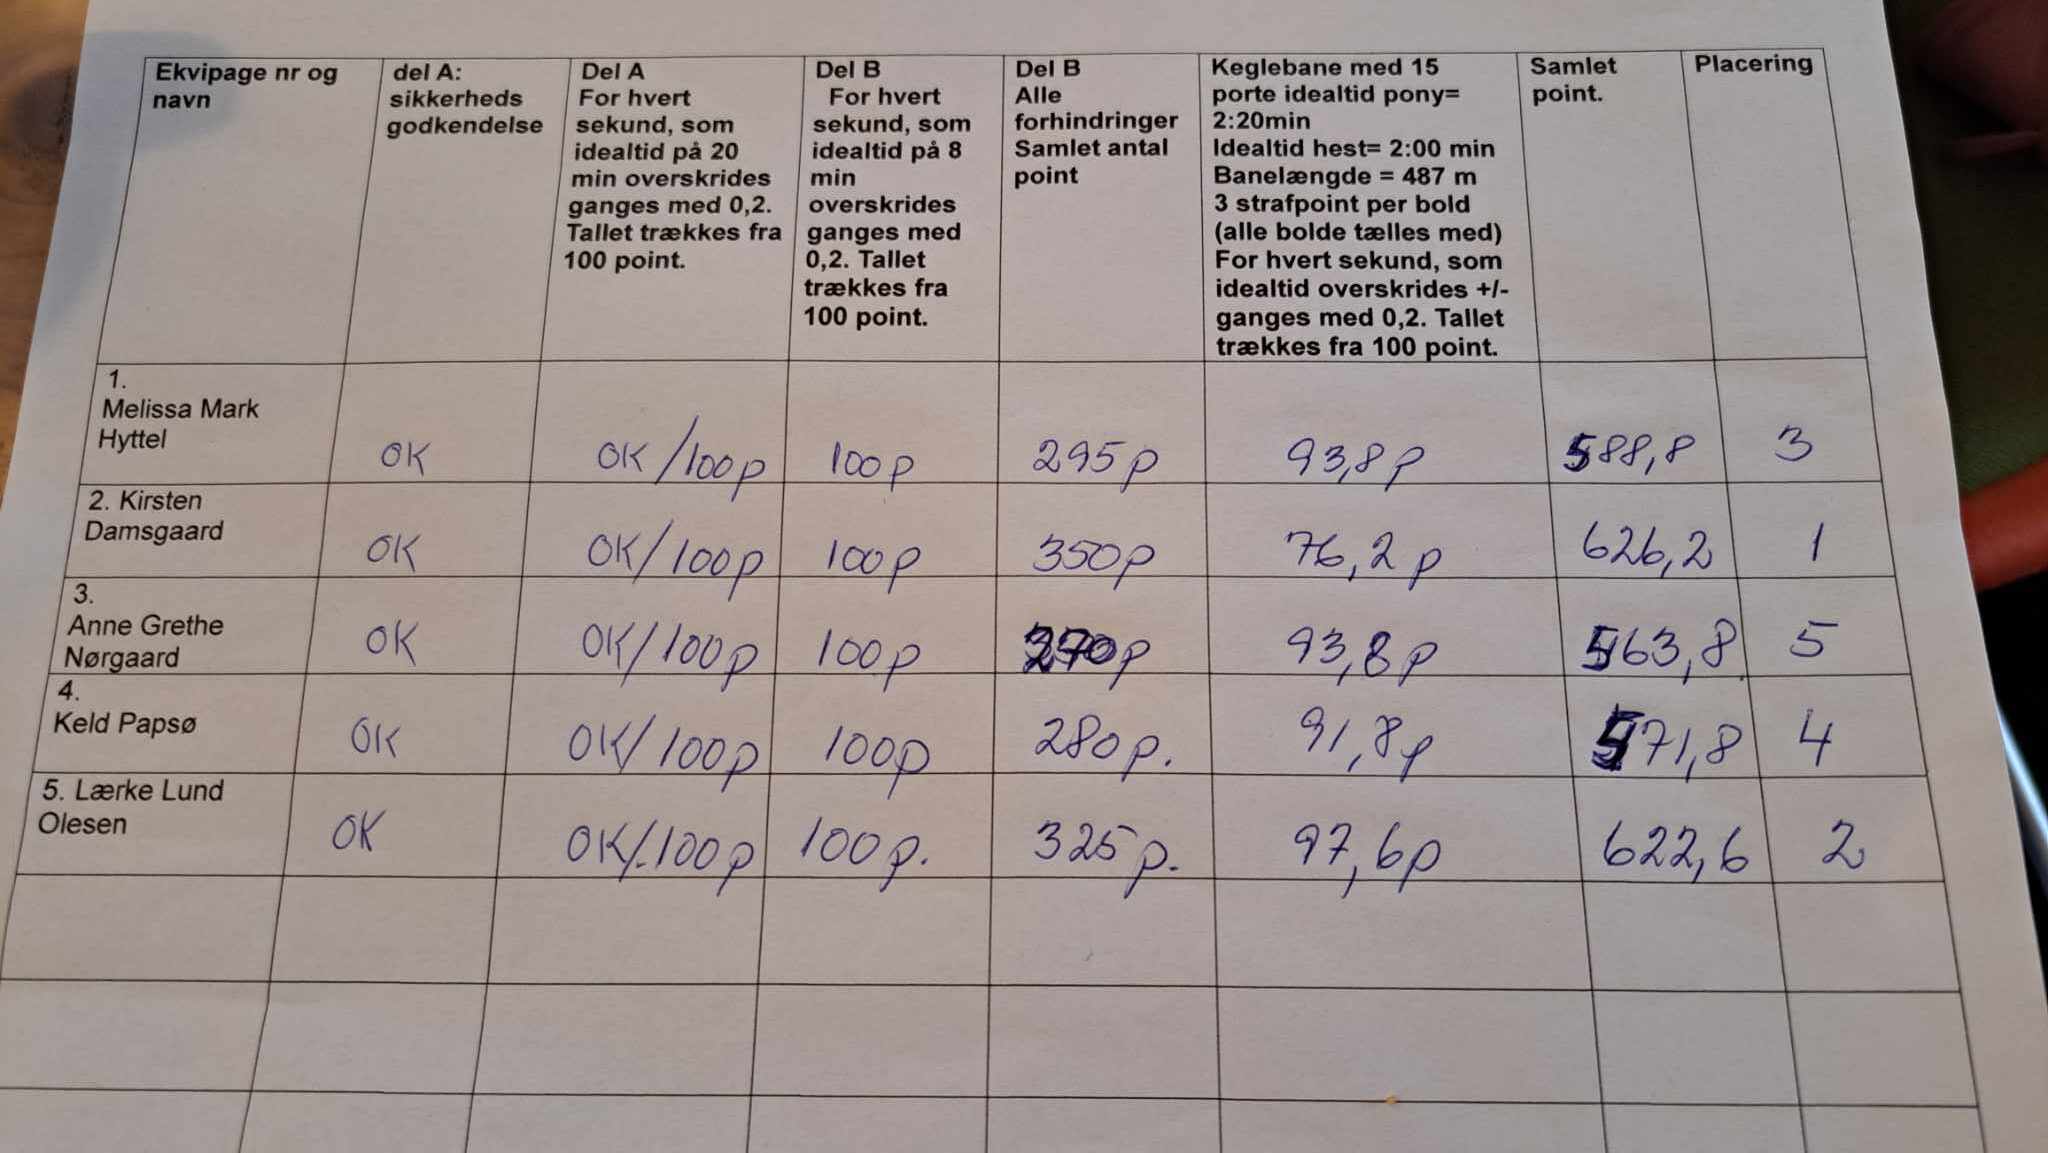 Ekvipage nr og
navn
del A:
sikkerheds
godkendelse
Del A
For hvert
sekund, som
idealtid på 20
min overskrides
ganges med 0,2.
Tallet trækkes fra
100 point.
Del B
For hvert
sekund, som
idealtid på 8
min
overskrides
ganges med
0,2. Tallet
trækkes fra
100 point.
Del B
Alle
forhindringer
Samlet antal
point
Keglebane med 15
porte idealtid pony=
2:20min
Idealtid hest= 2:00 min
Banelængde = 487 m
3 strafpoint per bold
(alle bolde tælles med)
For hvert sekund, som
idealtid overskrides +/-
ganges med 0,2. Tallet
trækkes fra 100 point.
Samlet
point.
Placering
1.
Melissa Mark
Hyttel
OK
OK/100p
100p
295p
93,8p
588,8
3
2. Kirsten
Damsgaard
OK
OK/100p
100p
350p
76,2p
626,2
1
3.
Anne Grethe
Nørgaard
OK
OK/100p
100p
270p
93,8p
563,8
5
4.
Keld Papsø
OK
OK/100p
100p
280p.
91,8p
571,8
4
5. Lærke Lund
Olesen
OK
OK/.100p
100p.
325p.
97,6p
622,6
2